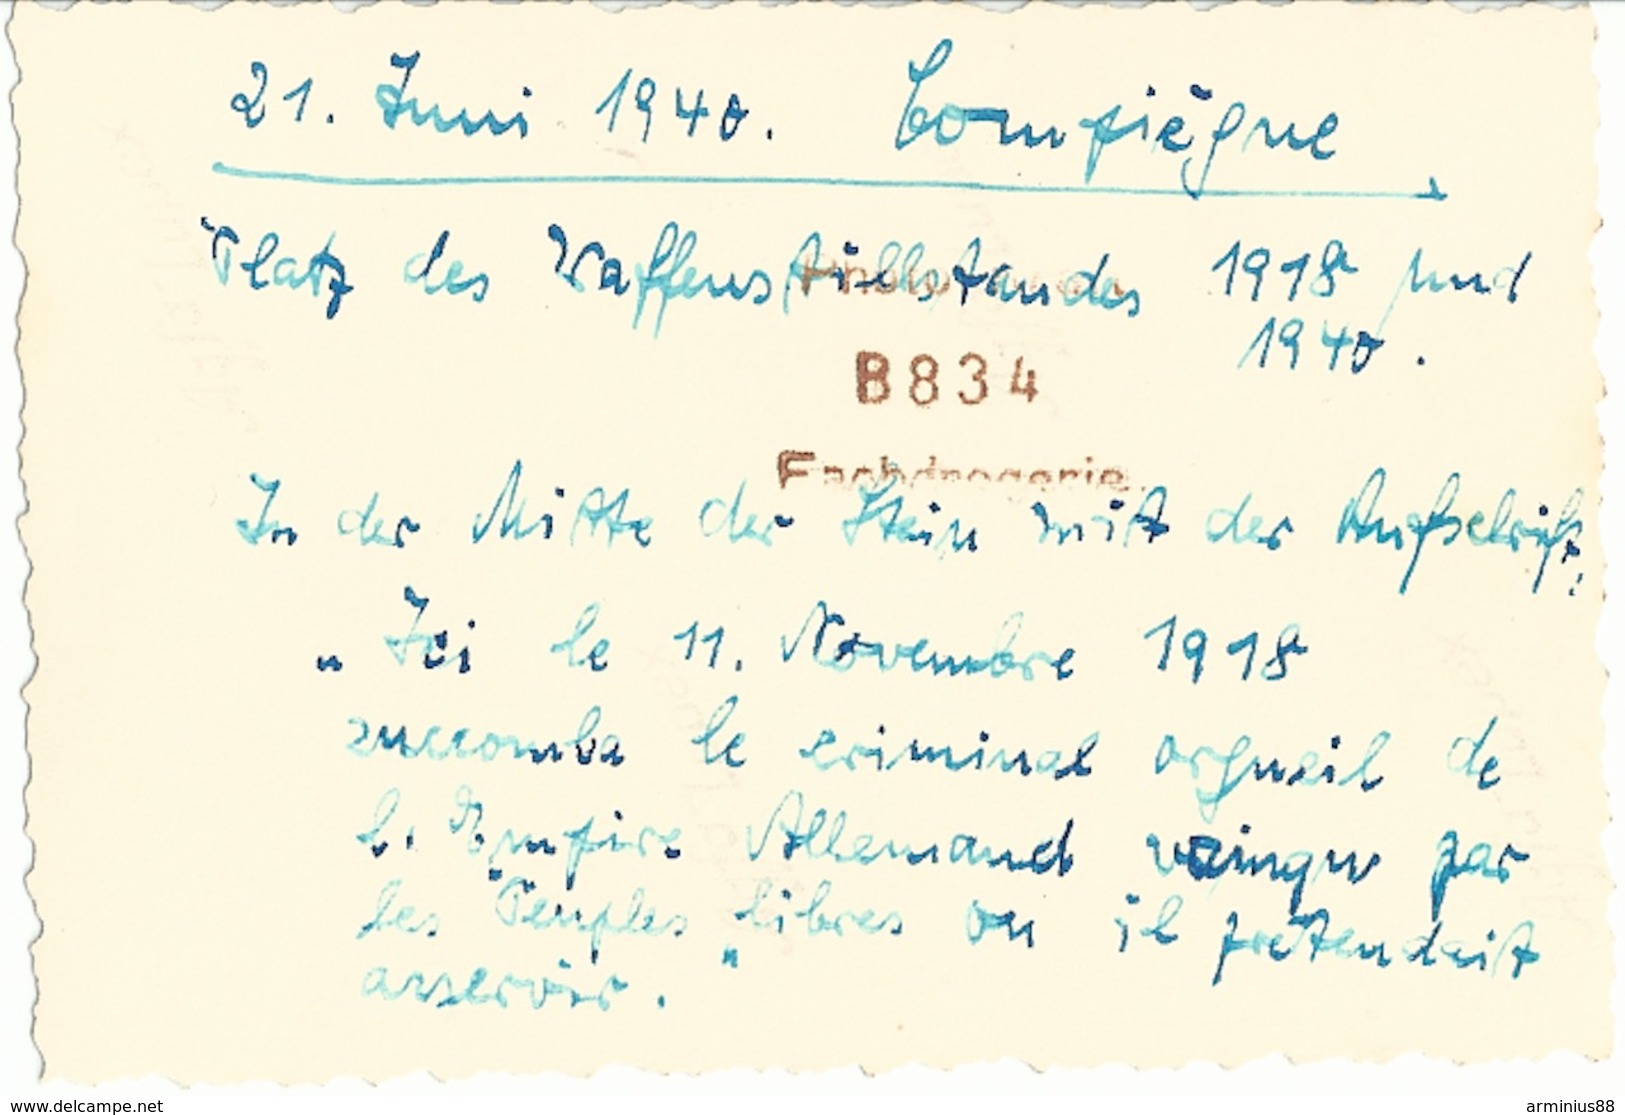 21. Juni 1940. Compiègne
Platz des Waffenstillstandes 1918 und
1940.
B834
Fachdrogerie
In der Mitte der Stein mit der Aufschrift:
„Ici le 11. Novembre 1918
succomba le criminal orgueil de
l. Empire Allemand vainqu par
les Peuples libres ou il prétendait
asservir."
www.delcampe.net
arminius88